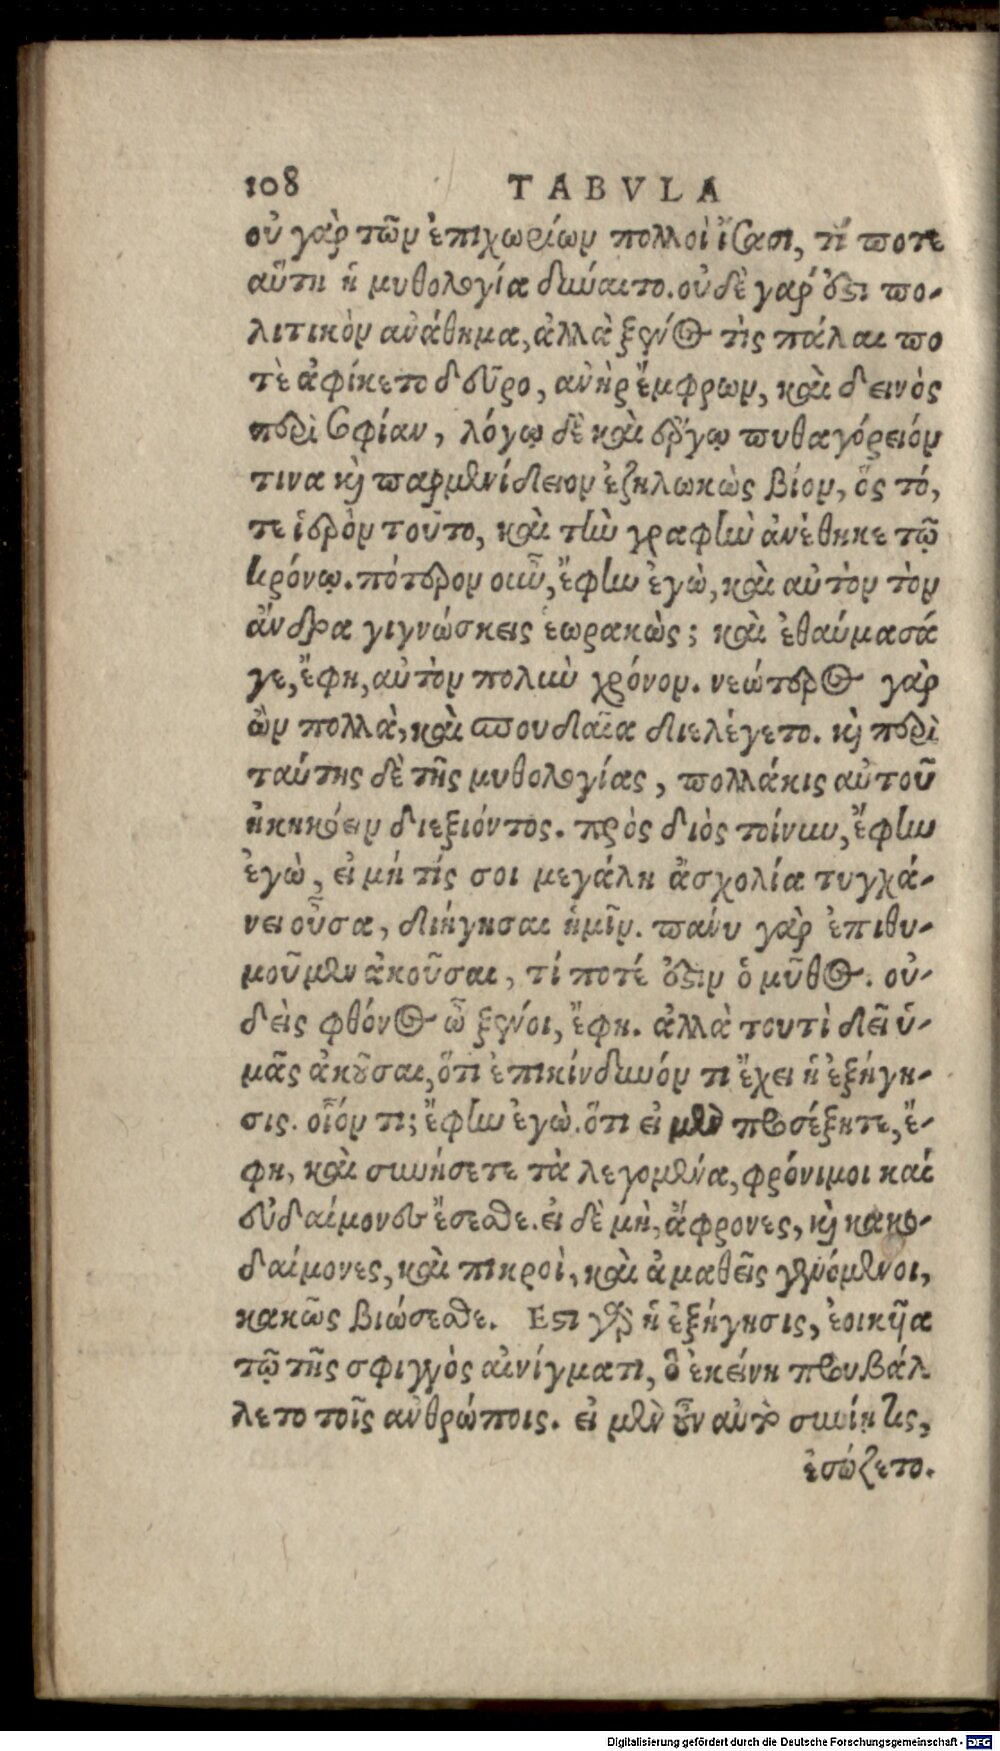 108 TABVLA
οὐ γὰρ τῶν ἐπιχωρίων πολλοὶ ἴσασι, τί ποτε
αὕτη ἡ μυθολογία δύναιτο. οὐδὲ γάρ ὅστι πο-
λιτικὸν ἀνάθημα, ἀλλὰ ξένος τὶς πάλαι πο
τὲ ἀφίκετο δεῦρο, ἀνὴρ ἔμφρων, καὶ δεινὸς
περὶ σοφίαν, λόγῳ δὲ καὶ ἔργῳ πυθαγόρειόν
τινα καὶ παρμενίδειον ἐζηλωκὼς βίον, ὅς τό,
τε ἱερὸν τοῦτο, καὶ τὴν γραφὴν ἀνέθηκε τῷ
κρόνῳ. πότερον οὖν, ἔφην ἐγὼ, καὶ αὐτὸν τὸν
ἄνδρα γιγνώσκεις ἑωρακὼς; καὶ ἐθαύμασά
γε, ἔφη, αὐτὸν πολὺν χρόνον. νεώτερος γὰρ
ὢν πολλὰ, καὶ σπουδαῖα διελέγετο. καὶ περὶ
ταύτης δὲ τῆς μυθολογίας, πολλάκις αὐτοῦ
ἠκηκόειν διεξιόντος. πρὸς διὸς τοίνυν, ἔφην
ἐγὼ, εἰ μή τίς σοι μεγάλη ἀσχολία τυγχά-
νει οὖσα, διήγησαι ἡμῖν. πάνυ γὰρ ἐπιθυ-
μοῦμεν ἀκοῦσαι, τί ποτέ ὅστιν ὁ μῦθος. οὐ-
δεὶς φθόνος ὦ ξένοι, ἔφη. ἀλλὰ τουτὶ δεῖ ὑ-
μᾶς ἀκοῦσαι, ὅτι ἐπικίνδυνόν τι ἔχει ἡ ἐξήγη-
σις. οἷόν τι; ἔφην ἐγὼ. ὅτι εἰ μὲν προσέξητε, ἔ-
φη, καὶ συνήσετε τὰ λεγομένα, φρόνιμοι καὶ
εὐδαίμονες ἔσεσθε. εἰ δὲ μὴ, ἄφρονες, καὶ κακο-
δαίμονες, καὶ πικροὶ, καὶ ἀμαθεῖς γενόμενοι,
κακῶς βιώσεσθε. Εστι γὰρ ἡ ἐξήγησις, ἐοικυῖα
τῷ τῆς σφιγγὸς αἰνίγματι, ὃ ἐκείνη προυβάλ
λετο τοῖς ἀνθρώποις. εἰ μὲν οὖν αὐτὸ συνίη τις,
ἐσώζετο.
Digitalisierung gefördert durch die Deutsche Forschungsgemeinschaft - DFG